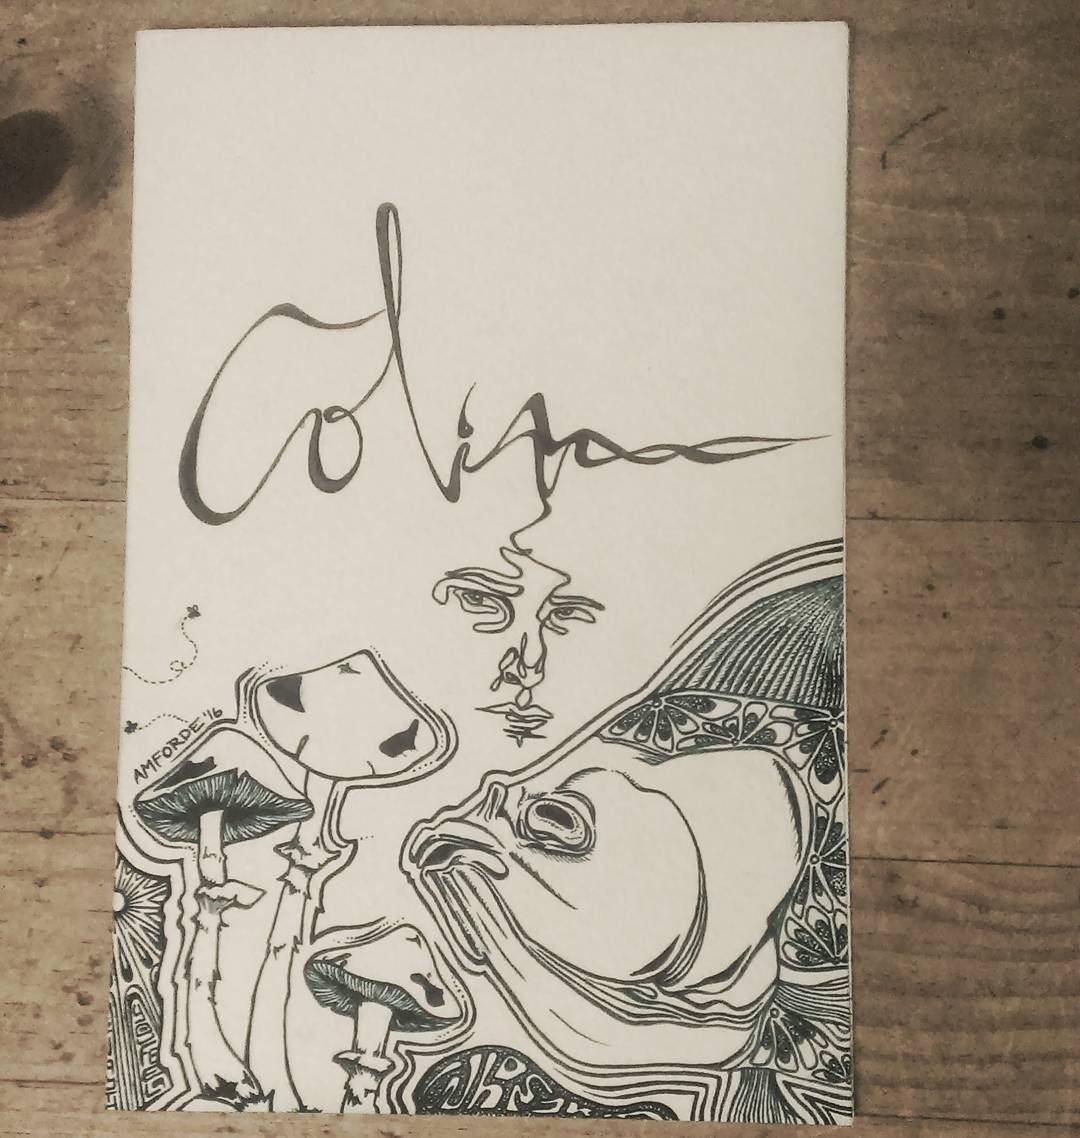 Colin
AMFORDE '16